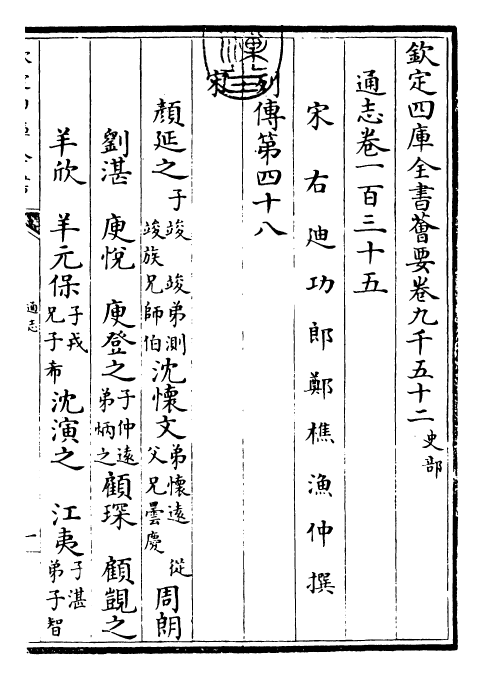 欽定四庫全書薈要卷九千五十二 史部
通志卷一百三十五
宋右迪功郎鄭樵漁仲撰
列傳第四十八
宋
顏延之 子竣 竣弟測 竣族兄師伯 沈懷文 弟懷遠 從父兄曇慶 周朗
劉湛 庾悅 庾登之 子仲遠 弟炳之 顧琛 顧覬之
羊欣 羊元保 子戎 兄子希 沈演之 江夷 子湛 弟子智
通志
一